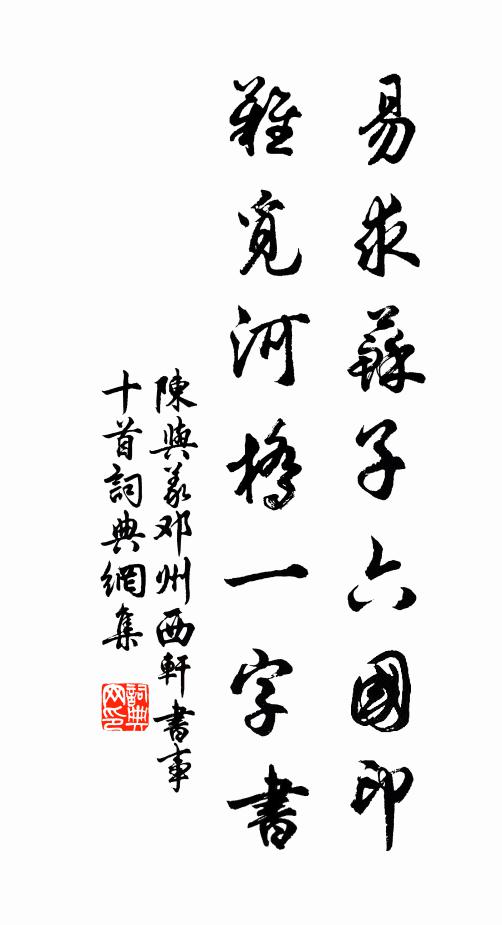 易求蘇子六國印
難覓河橋一字書
陳與義邓州西軒書事
十首詞典網集
詞典
网印